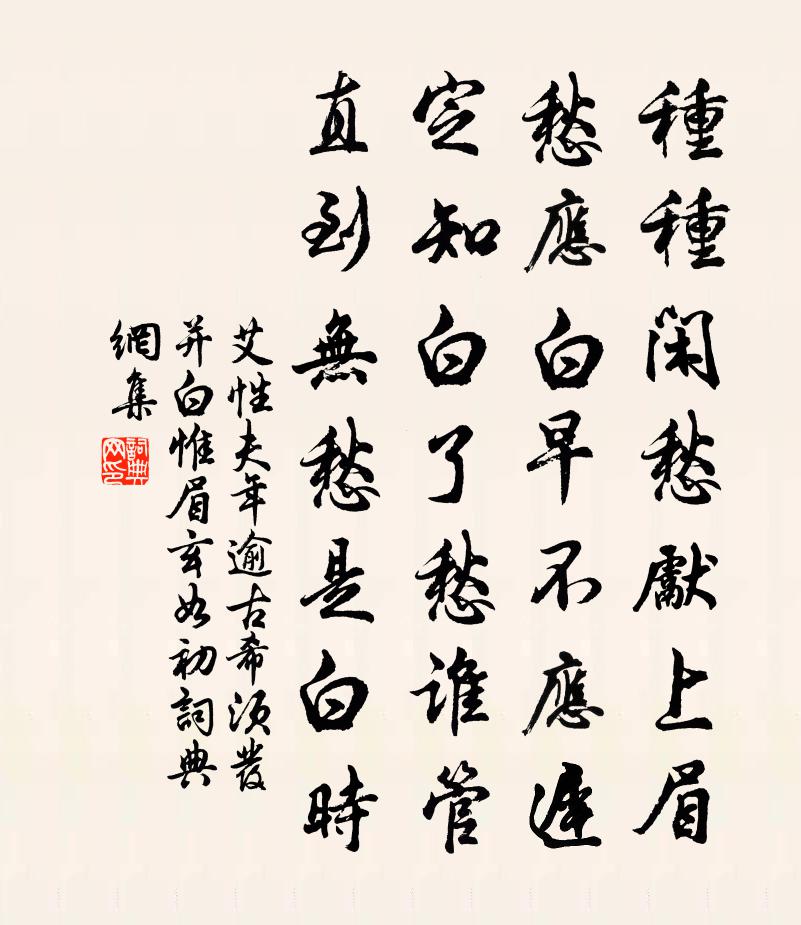 種種閑愁獻上眉
愁應白早不應遲
定知白了愁誰管
直到無愁是白時
艾性夫年逾古希须發
并白惟眉玄如初詞典
網集
詞典
网印